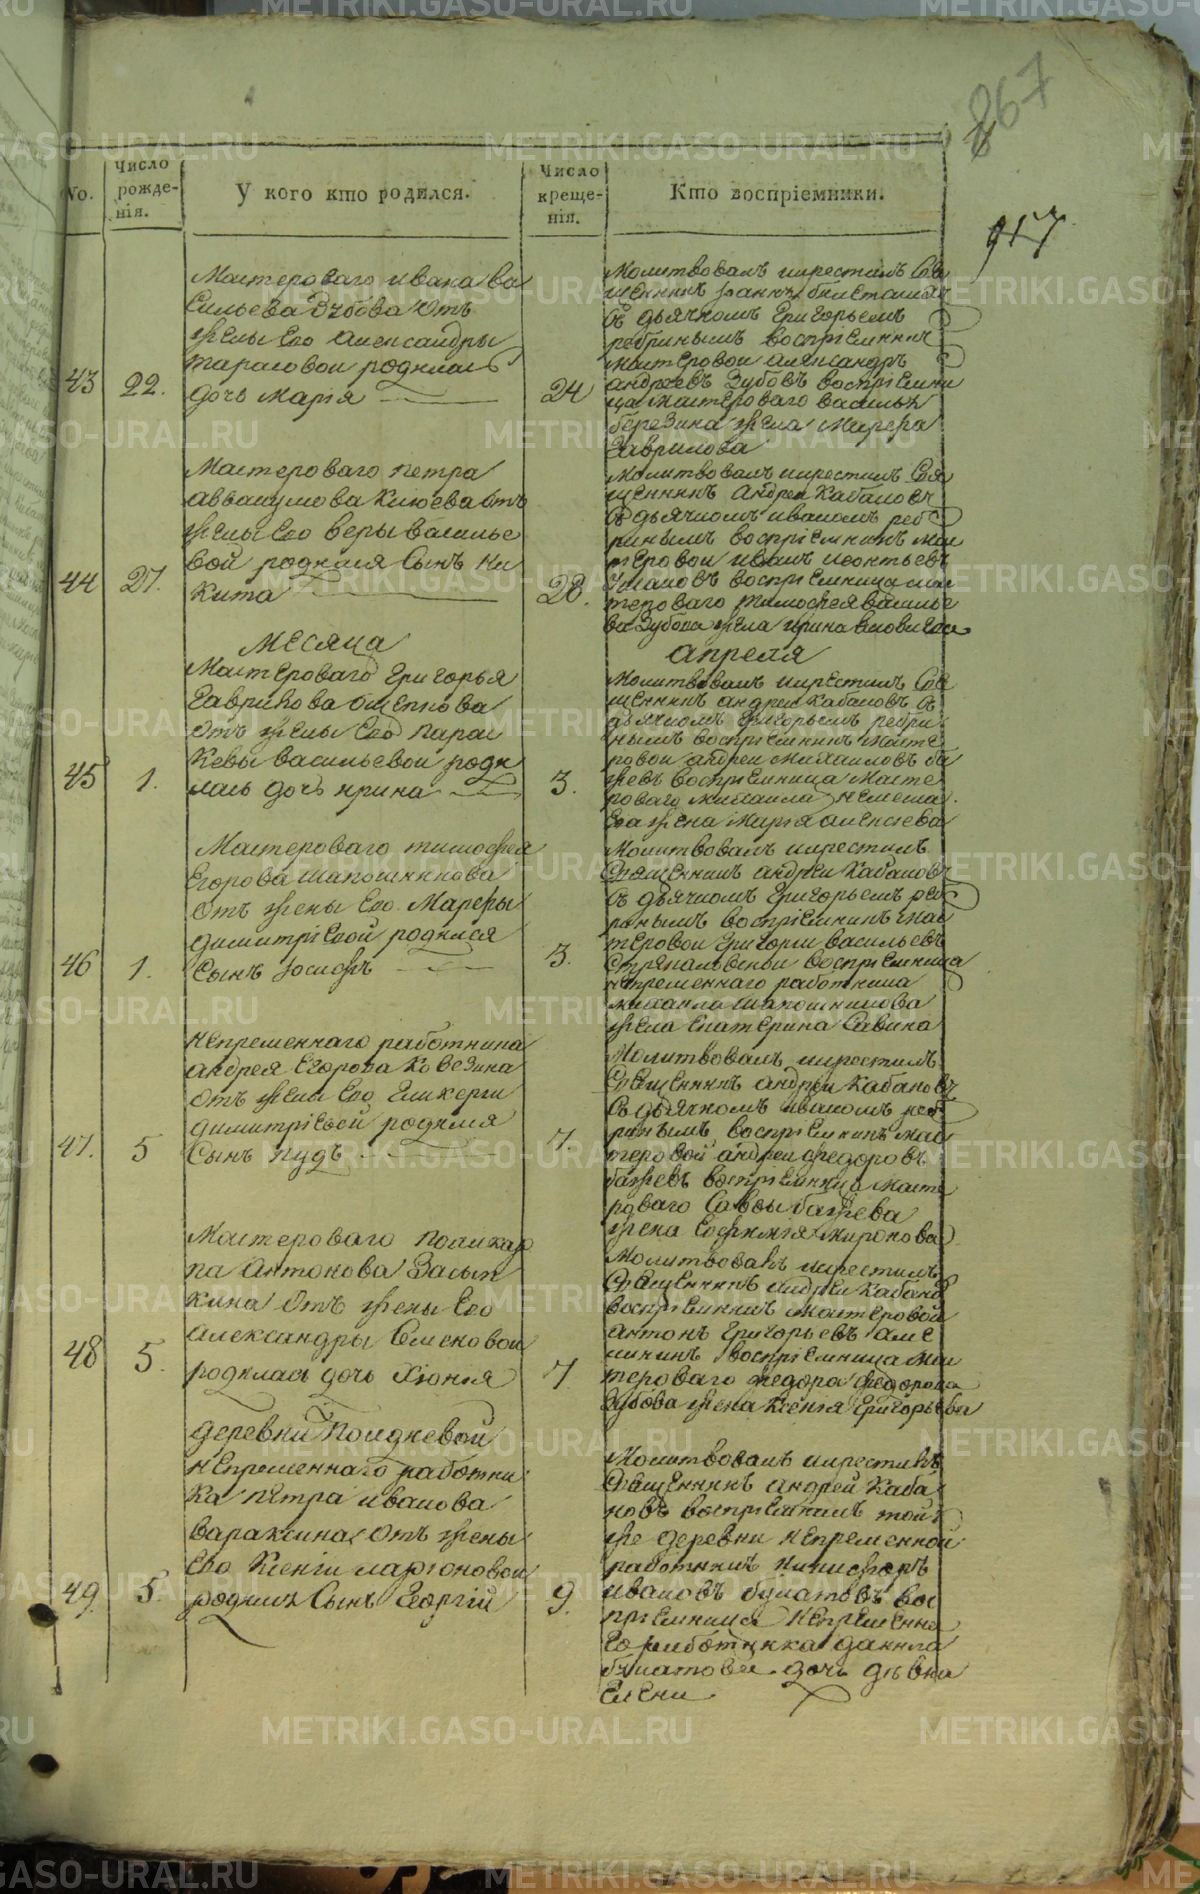 867
917
No.
Число рожденія.
У кого кто родился.
Число крещенія.
Кто воспріемники.
43
22.
Мастероваго Ивана Ва
сильева Зубова отъ
жены Его Александры
Тарасовой родилась
дочь Марія
24
Молитвовалъ и крестилъ Свя
щенникъ
съ дьячкомъ Григорьемъ
ребринымъ воспріемникъ
мастеровой Александръ
андреевъ Зубовъ воспріемни
ца мастероваго Василья
березина жена Марфа
Гаврилова
44
27.
Мастероваго Петра
Аввакумова Клюева отъ
жены Его Веры Василье
вой родился Сынъ Ни
кита
28.
Молитвовалъ и крестилъ Свя
щенникъ Андрей Кабановъ
съ дьячкомъ Иваномъ реб
ринымъ воспріемникъ мас
теровой Иванъ Леонтьевъ
воспріемница мас
тероваго Тимофея Василье
ва Зубова жена Ирина
месяца
апреля
45
1.
Мастероваго Григорья
Гаврилова
отъ жены Его Парас
кевы Васильевой роди
лась дочь Ирина
3.
Молитвовалъ и крестилъ Свя
щенникъ Андрей Кабановъ съ
дьячкомъ Григорьемъ ребри
нымъ воспріемникъ масте
ровой Андрей Михаиловъ ба
жевъ воспріемница масте
роваго Михаила
ва жена Марія Алексеева
46
1.
Мастероваго Тимофея
Егорова Шапошникова
отъ жены Его Марфы
Димитріевой родился
Сынъ Іосифъ
3.
Молитвовалъ и крестилъ
Священникъ Андрей Кабановъ
съ дьячкомъ Григорьемъ реб
ринымъ воспріемникъ мас
теровой Григорій Васильевъ
воспріемница
непременнаго работника
Михаила Шапошникова
жена Екатерина Савина
47.
5
непременнаго работника
Андрея Егорова Ковезина
отъ жены Его Гликерии
Димитріевой родился
Сынъ Пудъ
7.
Молитвовалъ и крестилъ
Священникъ Андрей Кабановъ
съ дьячкомъ Иваномъ реб
ринымъ воспріемникъ мас
теровой Андрей Федоровъ
бажевъ воспріемница масте
роваго Саввы бажева
жена Евфимія Миронова
48
5.
Мастероваго Поликар
па Антонова Засып
кина отъ жены Его
Александры Семеновой
родилась дочь Хіонія
7
Молитвовалъ и крестилъ
Священникъ Андрей Кабановъ
воспріемникъ мастеровой
Антонъ Григорьевъ але
шкинъ воспріемница мас
тероваго Федора Федорова
Зубова жена Ксенія Григорьева
49.
5.
деревни Полдневой
непременнаго работни
ка Петра Иванова
Вараксина отъ жены
Его Ксении Ларіоновой
родился Сынъ Георгій
9.
Молитвовалъ и крестилъ
Священникъ Андрей Каба
новъ воспріемникъ той
же деревни непременной
работникъ Никифоръ
Ивановъ булатовъ вос
пріемница непременна
го работника Данила
булатова дочь девка
Елена